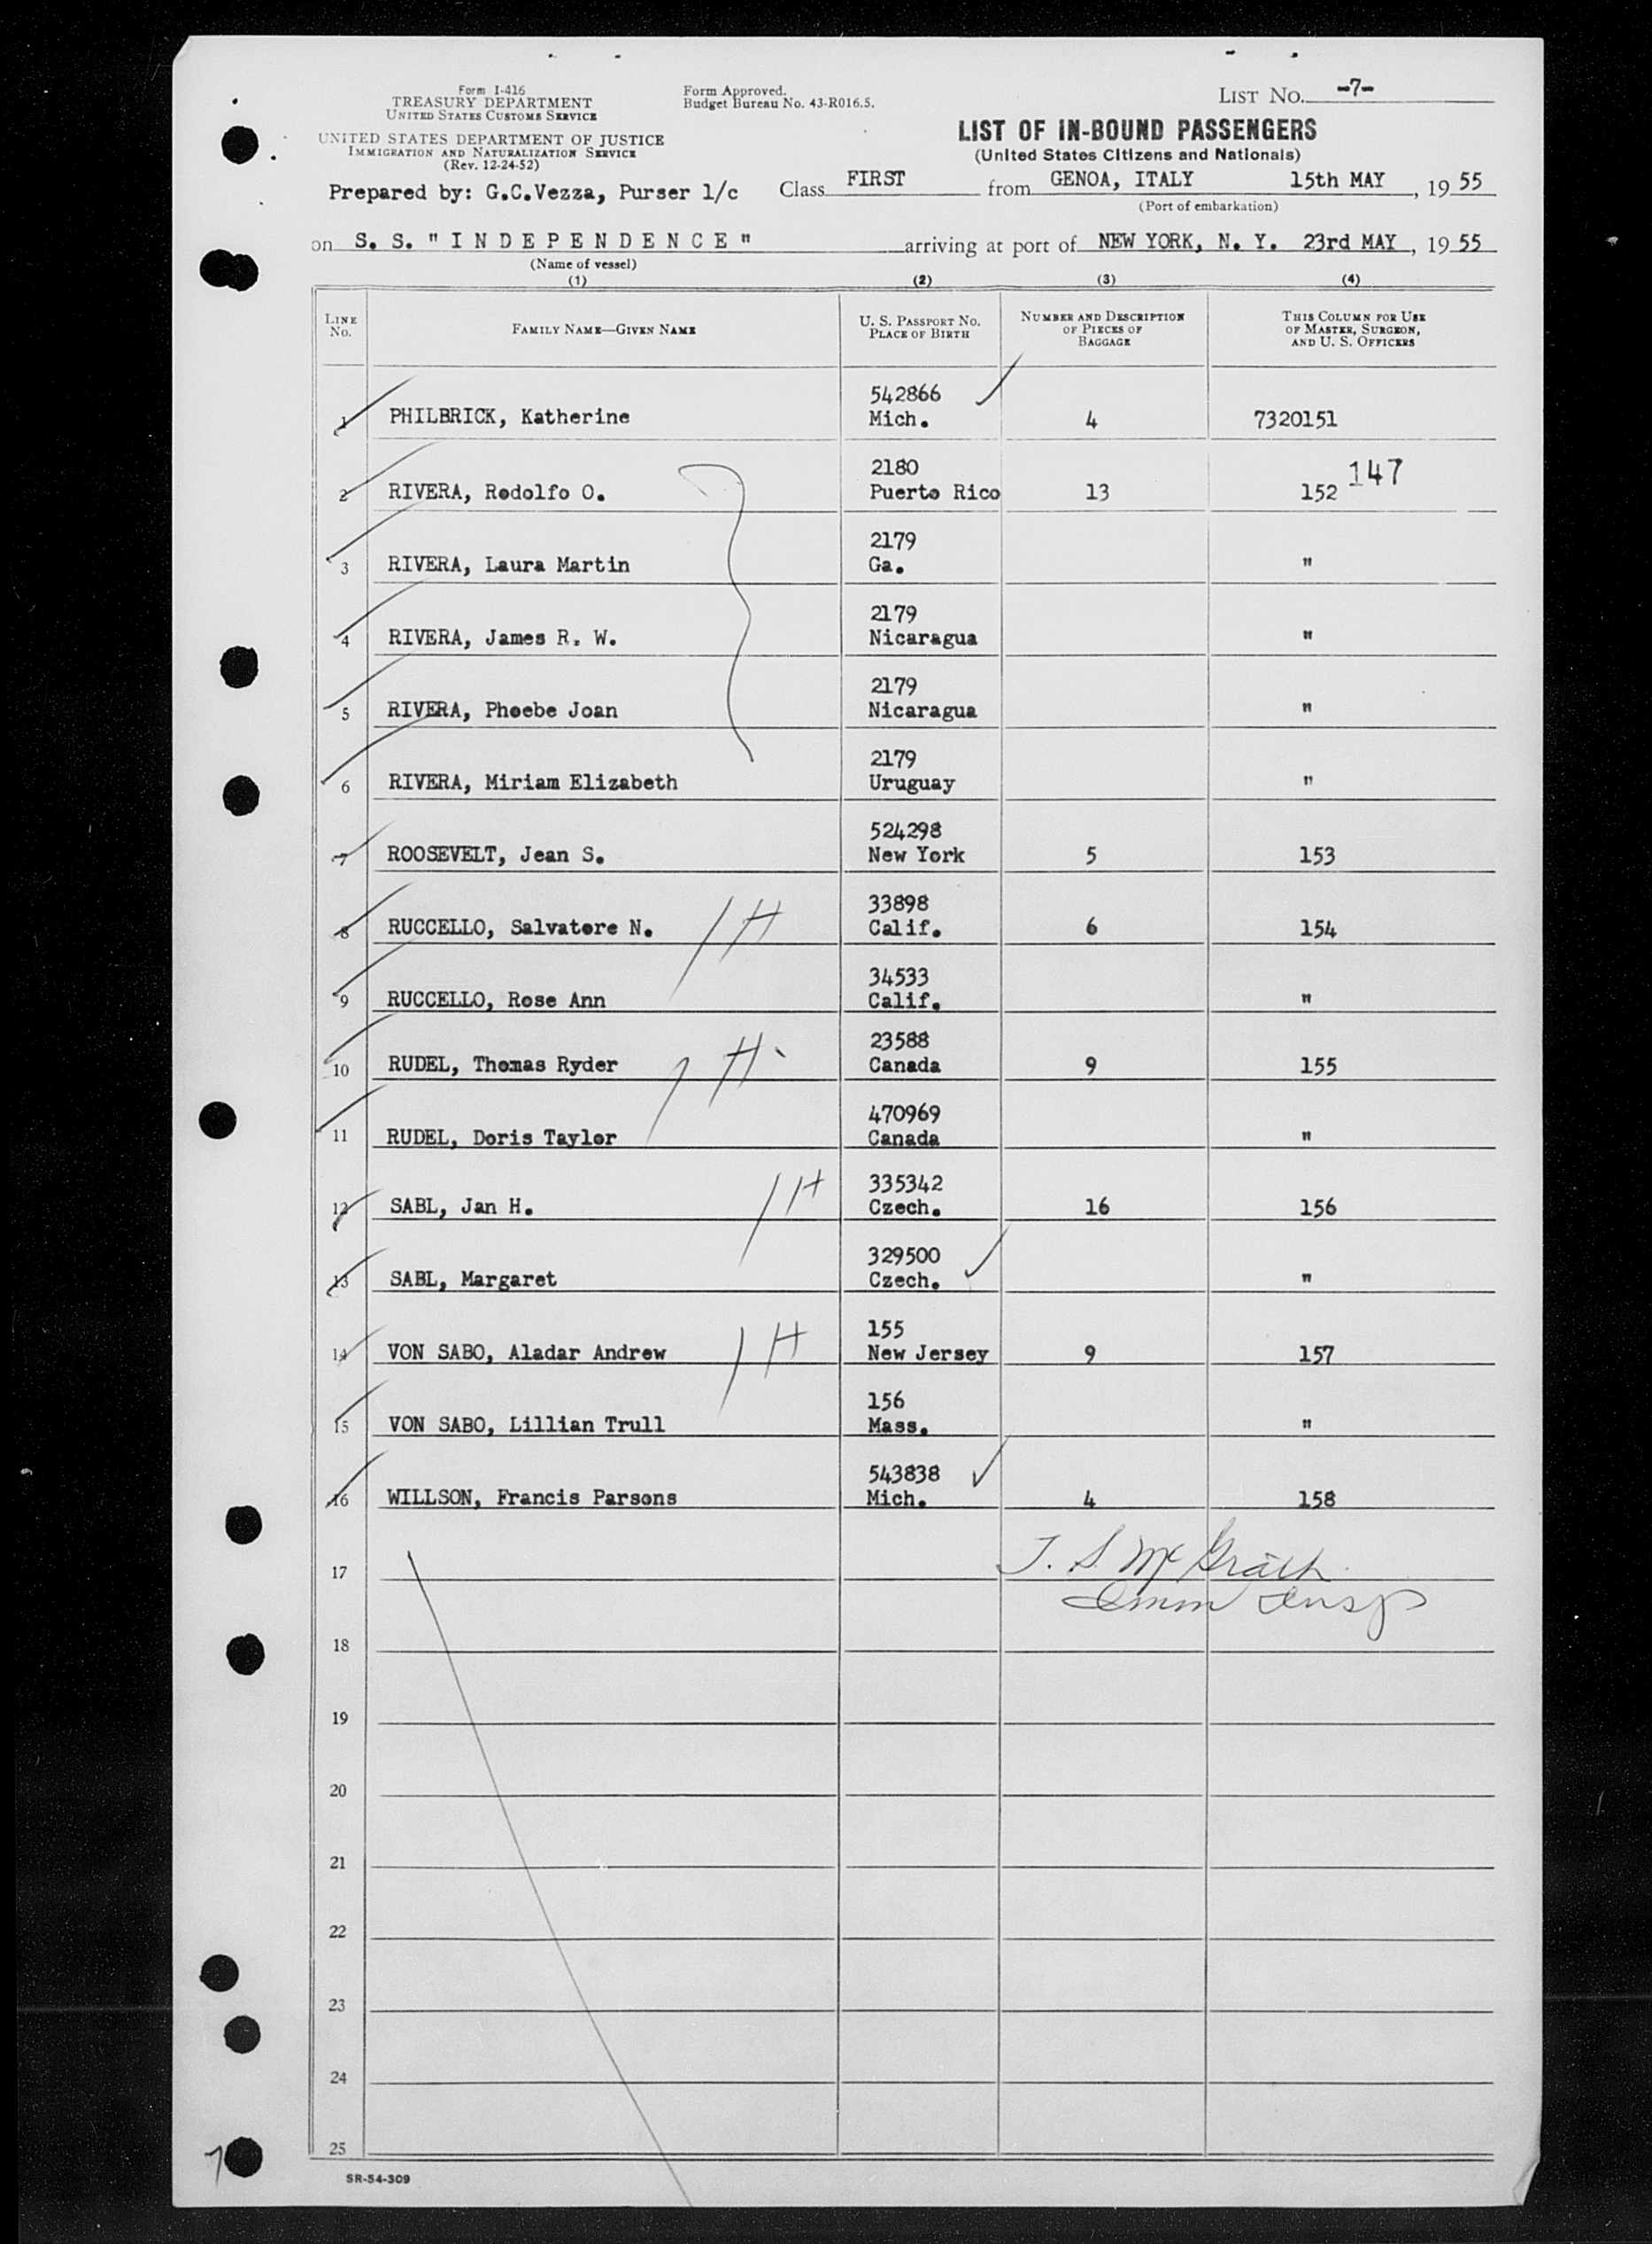 Form I-416
TREASURY DEPARTMENT
UNITED STATES CUSTOMS SERVICE
UNITED STATES DEPARTMENT OF JUSTICE
IMMIGRATION AND NATURALIZATION SERVICE
(Rev. 12-24-52)
Form Approved.
Budget Bureau No. 43-R016.5.
LIST NO. -7-
LIST OF IN-BOUND PASSENGERS
(United States Citizens and Nationals)
Prepared by: G.C.Vezza, Purser 1/c Class FIRST from GENOA, ITALY 15th MAY, 1955
(Port of embarkation)
on S. S. "INDEPENDENCE" arriving at port of NEW YORK, N. Y. 23rd MAY, 1955
(Name of vessel)
(1) (2) (3) (4)
LINE No. FAMILY NAME—GIVEN NAME U. S. PASSPORT NO. PLACE OF BIRTH NUMBER AND DESCRIPTION OF PIECES OF BAGGAGE THIS COLUMN FOR USE OF MASTER, SURGEON, AND U. S. OFFICERS
542866
1 PHILBRICK, Katherine Mich. 4 7320151
2180 147
2 RIVERA, Rodolfo O. Puerto Rico 13 152
2179
3 RIVERA, Laura Martin Ga. "
2179
4 RIVERA, James R. W. Nicaragua "
2179
5 RIVERA, Phoebe Joan Nicaragua "
2179
6 RIVERA, Miriam Elizabeth Uruguay "
524298
7 ROOSEVELT, Jean S. New York 5 153
33898
8 RUCCELLO, Salvatore N. 1H Calif. 6 154
34533
9 RUCCELLO, Rose Ann Calif. "
23588
10 RUDEL, Thomas Ryder 1H Canada 9 155
470969
11 RUDEL, Doris Taylor Canada "
335342
12 SABL, Jan H. 1H Czech. 16 156
329500
13 SABL, Margaret Czech. "
155
14 VON SABO, Aladar Andrew 1H New Jersey 9 157
156
15 VON SABO, Lillian Trull Mass. "
543838
16 WILLSON, Francis Parsons Mich. 4 158
17 T. S. McGrath
Imm Insp
18
19
20
21
22
23
24
25
7
SR-54-309